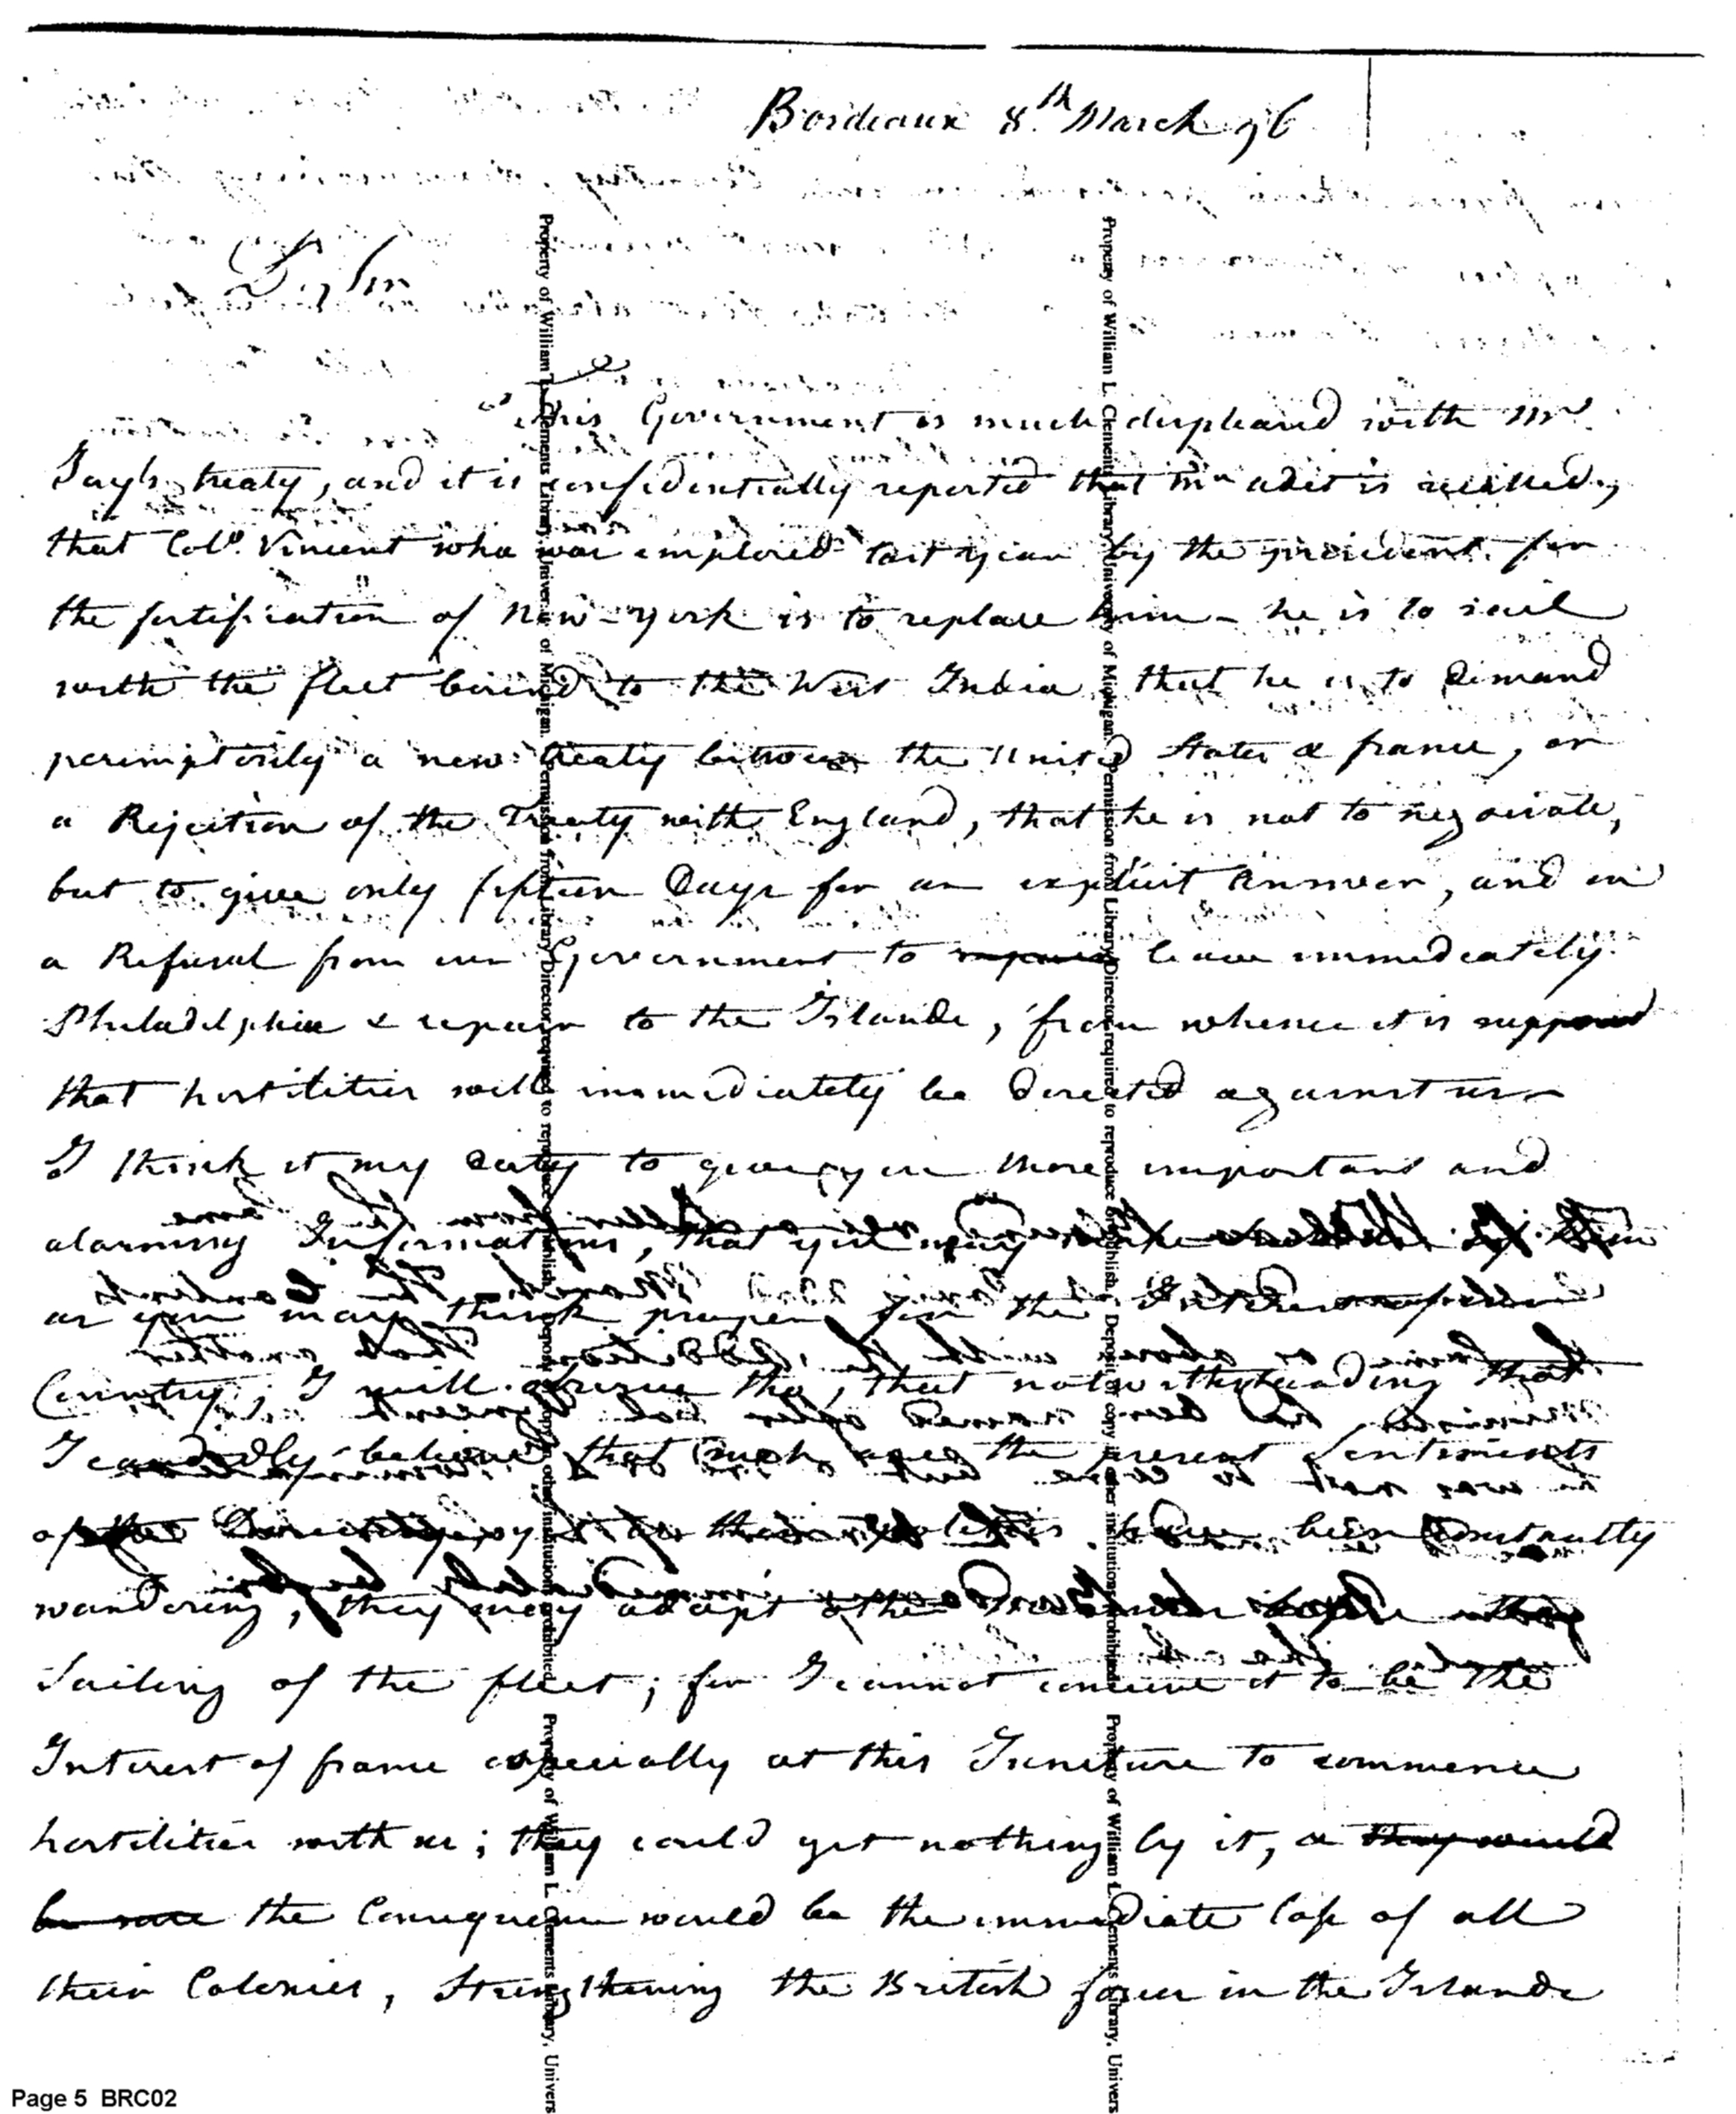 Bordeaux 8th March 96
Dr Sir
This Government is much displeased with Mr
Jay's treaty, and it is confidentially reported that Mr adet is recalled,
that Coll. Vincent who was emploied last year by the president for
the fortification of New-york is to replace him - he is to sail
with the fleet bound to the West India, that he is to Demand
peremptorily a new treaty between the United States & france, or
a Rejection of the Treaty with England, that he is not to negociate,
but to give only fifteen Days for an explicit Answer, and on
a Refusal from our Government to leave immediately
Philadelphia & repair to the Islands, from whence it is supposed
that hostilities will immediately be directed against us -
I think it my Duty to give you those important and
alarming Informations, that you may
as you may think proper for the
Country; I will observe tho', that notwithstanding that
I candidly believe that such are the present Sentiments
of the Directory, yet as their have been Constantly
wandering, they may adapt other Measures before the
Sailing of the fleet; for I cannot conceive it to be the
Interest of france especially at this Juncture to commence
hostilities with us; they could get nothing by it, & they would
be sure the Consequence would be the immediate loss of all
their Colonies, Strengthening the British force in the Islands
Property of William L. Clements Library, University of Michigan. Permission from Library Director required to reproduce or publish. Deposit of copy in other institutions prohibited.
Property of William L. Clements Library, Univers
Property of William L. Clements Library, University of Michigan. Permission from Library Director required to reproduce or publish. Deposit of copy in other institutions prohibited.
Property of William L. Clements Library, Univers
Page 5 BRC02